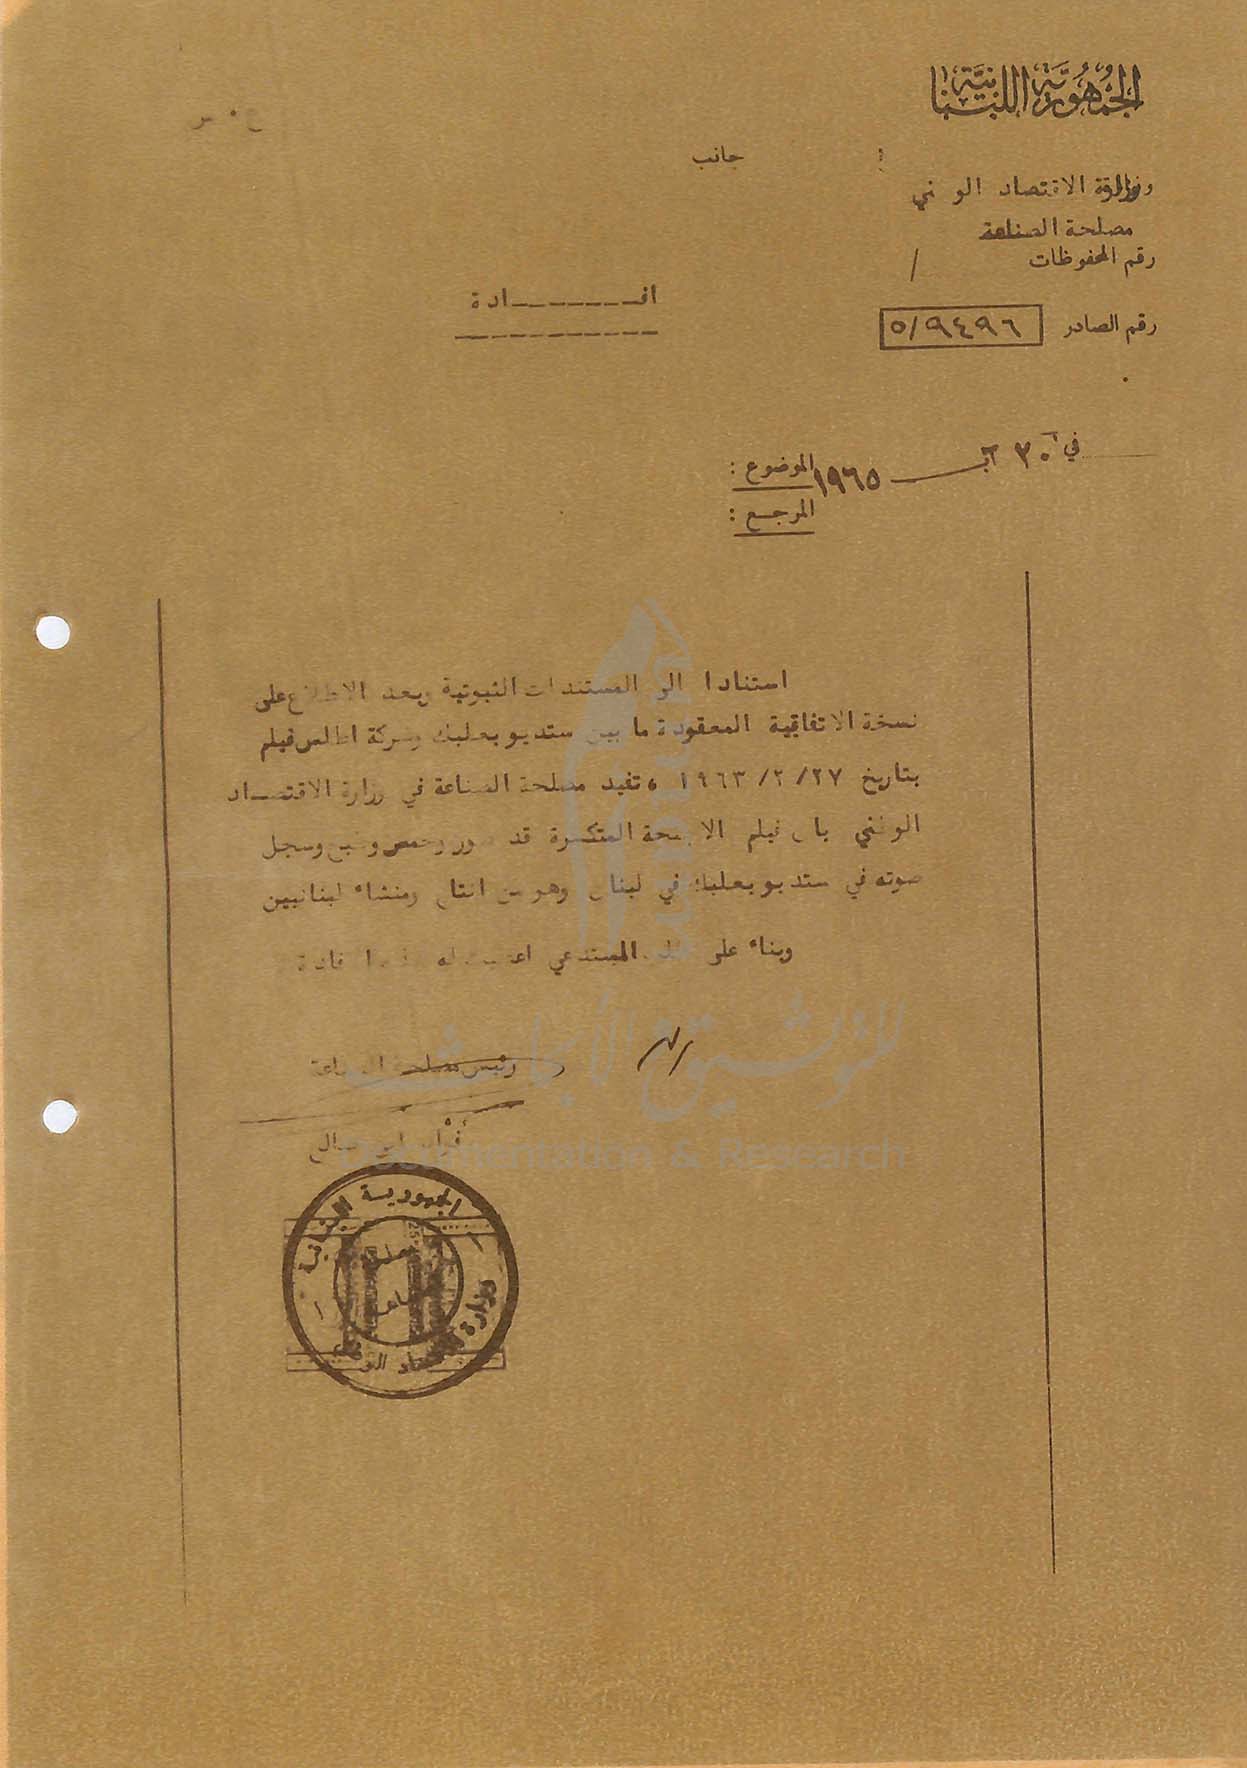 الجمهورية اللبنانية
ع . س
جانب
وزارة الاقتصاد الوطني
مصلحة الصناعة
رقم المحفوظات /
افــــــادة
رقم الصادر ٥/٩٤٩٦
في ٣٠ آب ١٩٦٥
الموضوع :
المرجع :
استنادا الى المستندات الثبوتية وبعد الاطلاع على
نسخة الاتفاقية المعقودة ما بين ستديو بعلبك وشركة اطلس فيلم
بتاريخ ٢٧/ ٢/ ١٩٦٣ ، تفيد مصلحة الصناعة في وزارة الاقتصــاد
الوطني بان فيلم الاجنحة المتكسرة قد صور وحمض وطبع وسجل
صوته في ستديو بعلبك في لبنان وهو من انتاج ومنشاء لبنانيين
وبناء على طلب المستدعي اعطيت له هذه الافادة
رئيس مصلحة الصناعة
فؤاد ابي صالح
الجمهورية اللبنانية
وزارة الاقتصاد الوطني
مصلحة
الصناعة
للتوثيق و الأبحاث
Documentation & Research